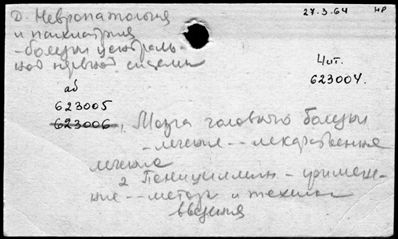 27.3.64 НР
Д. Невропатология
и психиатрия
-болезни централь-
ной нервной системы
Чит.
623004.
аб
623005
623006, Мозга головного болезни
-лечение--лекарственное
лечение
2 Пенициллин-примене-
ние--методы и техника
введения